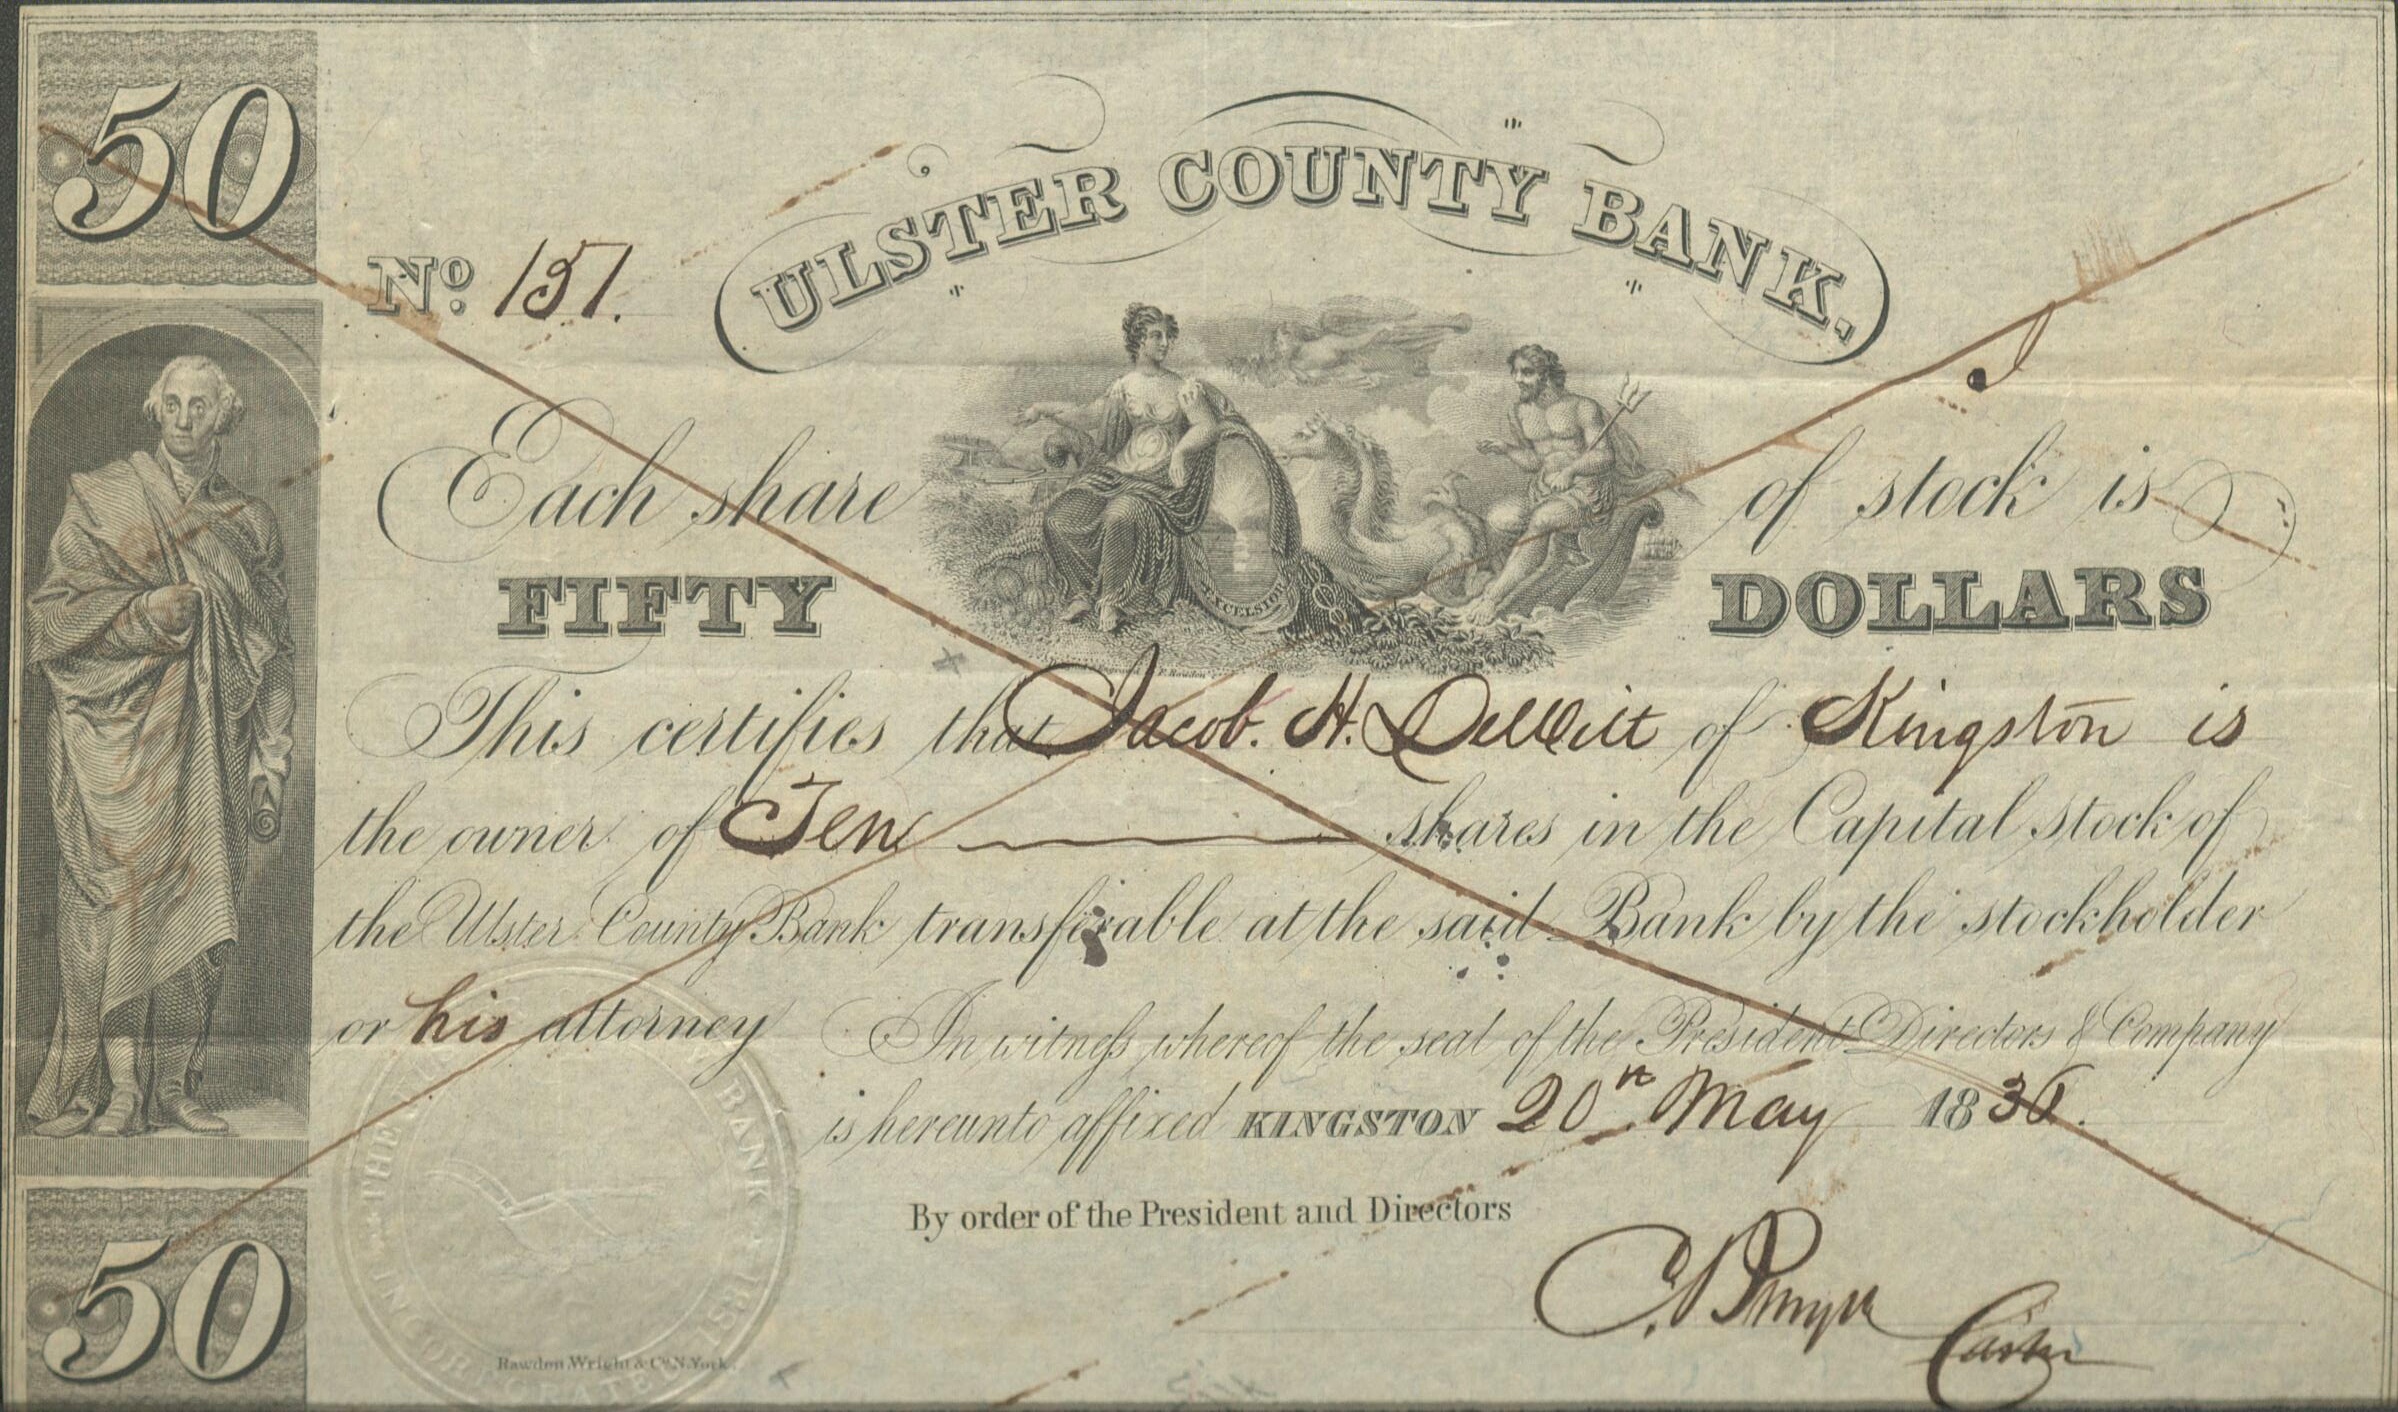 50
ULSTER COUNTY BANK.
No. 151.
Each share of stock is
FIFTY DOLLARS
EXCELSIOR
This certifies that Jacob. H. DeWitt of Kingston is
the owner of Ten shares in the Capital stock of
the Ulster County Bank transferable at the said Bank by the stockholder
or his attorney In witness whereof the seal of the President Directors & Company
is hereunto affixed KINGSTON 20th May 1836.
By order of the President and Directors
50
THE BANK
INCORPORATED 1831
Rawdon, Wright & Co. N. York.
C. Bruyn
Cashr